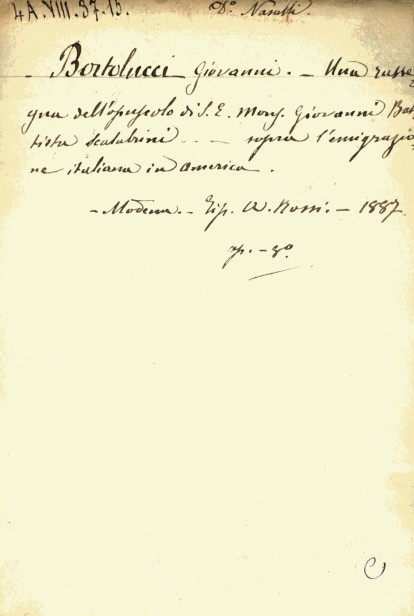 4A.VIII.37.15. Do. Nasalli.
- Bortolucci Giovanni. - Una rasse
gna dell'opuscolo di S. E. Mons. Giovanni Bat
tista Scalabrini .. - sopra l'emigrazio
ne italiana in America.
- Modena. - Tip. A. Rossi. - 1887
- 8o.